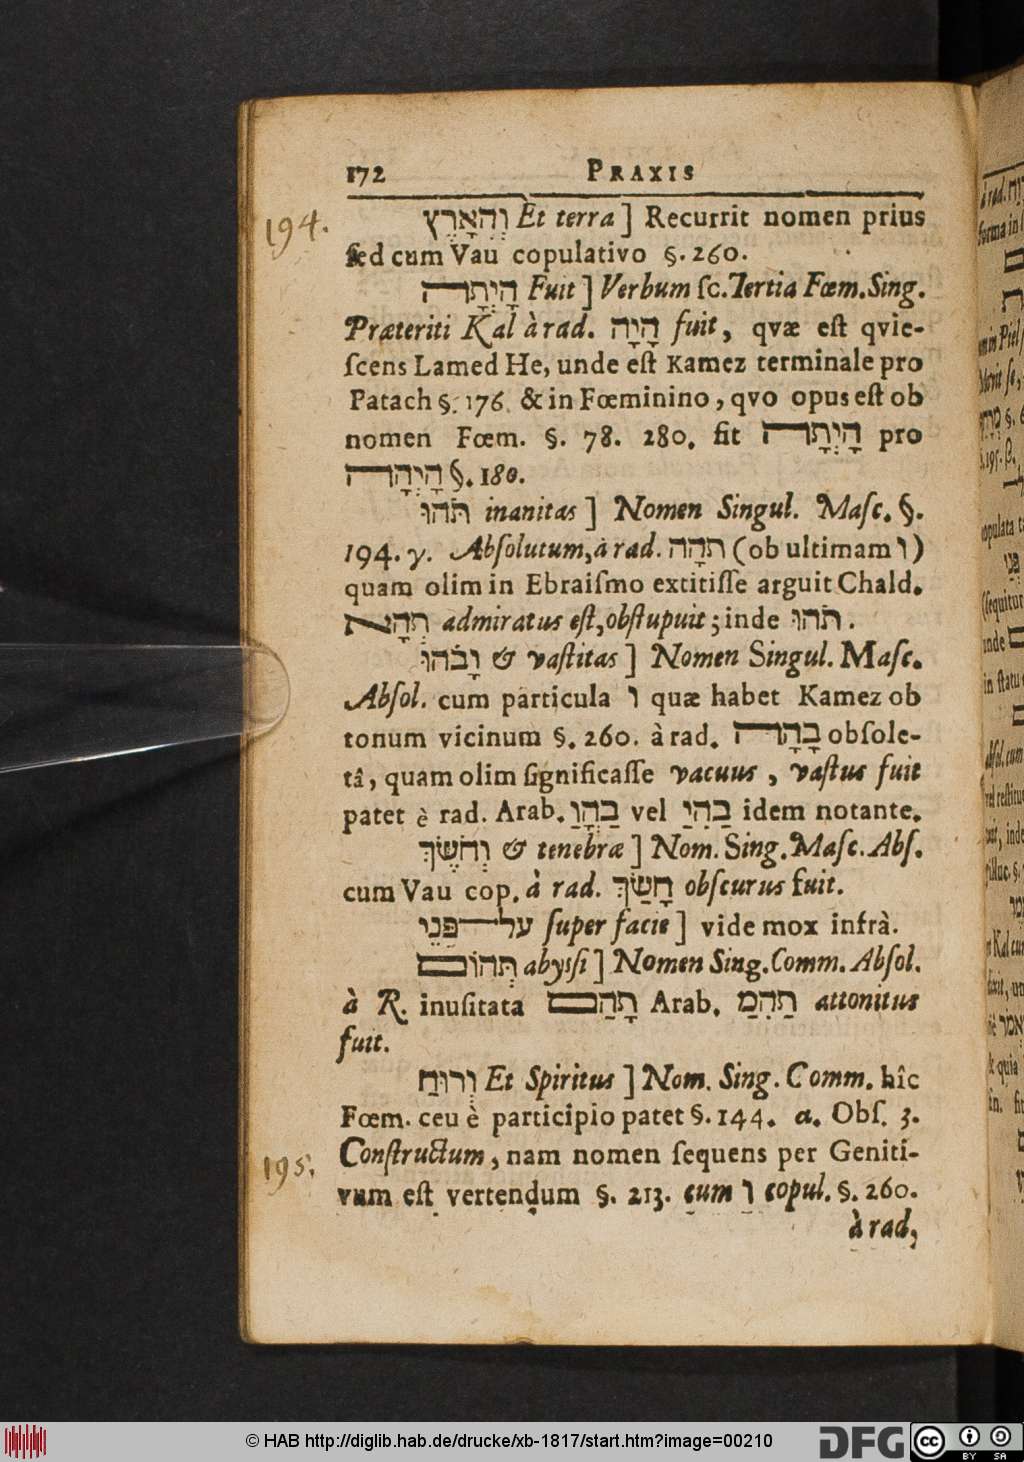 172 PRAXIS
194.
וְהָאָרֶץ Et terra] Recurrit nomen prius
sed cum Vau copulativo §.260.
הָיְתָה Fuit] Verbum sc. Tertia Fœm. Sing.
Præteriti Kal à rad. הָיָה fuit, qvæ est qvie-
scens Lamed He, unde est Kamez terminale pro
Patach §. 176. & in Fœminino, qvo opus est ob
nomen Fœm. §. 78. 280. fit הָיְתָה pro
הָיְהָה §. 180.
תֹהוּ inanitas] Nomen Singul. Masc. §.
194. γ. Absolutum, à rad. תהָה (ob ultimam ו)
quam olim in Ebraismo extitisse arguit Chald.
תְהָא admiratus est, obstupuit; inde תֹהוּ.
וָבֹהוּ & vastitas] Nomen Singul. Masc.
Absol. cum particula ו quæ habet Kamez ob
tonum vicinum §. 260. à rad. בָהָה obsole-
tâ, quam olim significasse vacuus, vastus fuit
patet è rad. Arab. בַהֲוַ vel בַהִיַ idem notante.
וְחֹשֶׁךְ & tenebræ] Nom. Sing. Masc. Abs.
cum Vau cop. à rad. חָשַׁךְ obscurus fuit.
על־פְּנֵי super facie] vide mox infrà.
תְּהוֹם abyssi] Nomen Sing. Comm. Absol.
à R. inusitata תָהַם Arab. תַהִמַ attonitus
fuit.
וְרוּחַ Et Spiritus] Nom. Sing. Comm. hîc
Fœm. ceu è participio patet §. 144. a. Obs. 3.
195.
Constructum, nam nomen sequens per Geniti-
vum est vertendum §. 213. cum ו copul. §. 260.
à rad,
© HAB http://diglib.hab.de/drucke/xb-1817/start.htm?image=00210
DFG
cc
BY SA